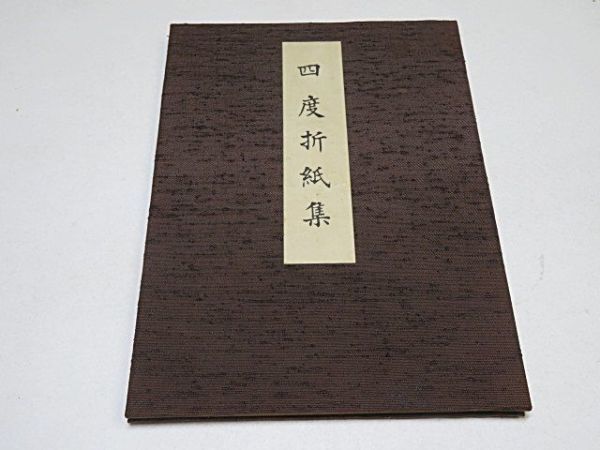 四度折紙集